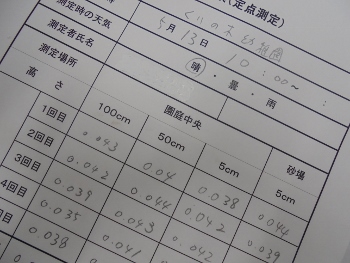 (定点測定)
くりの木 幼稚園
5月13日 10:00~ :
測定時の天気 晴・曇・雨
測定者氏名
測定場所 園庭中央 砂場
高さ 100cm 50cm 5cm 5cm
1回目 0.043 0.04 0.038 0.044
2回目 0.042 0.044 0.042 0.039
3回目 0.039 0.043 0.042
4回目 0.035 0.041
回目 0.038